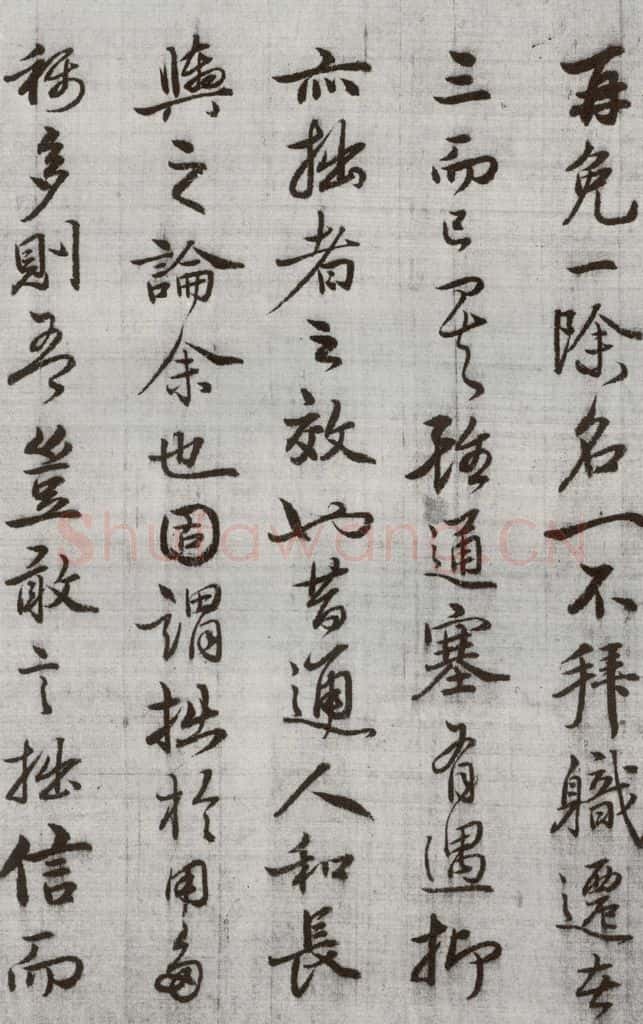 再免一除名一不拜職遷者
三而已矣雖通塞有遇抑
亦拙者之效也昔通人和長
輿之論余也固謂拙於用多
稱多則吾豈敢言拙信而
Shufawang.CN